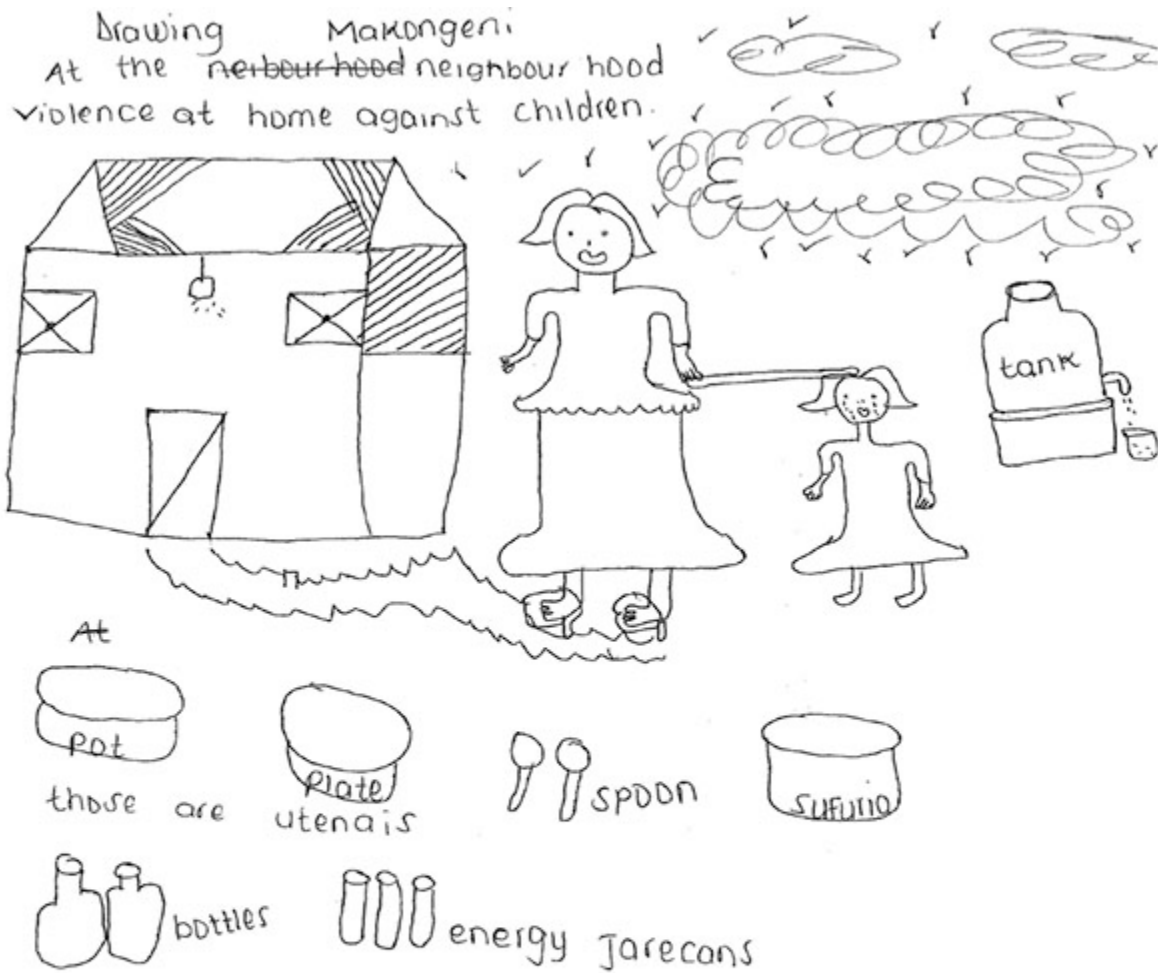 Drawing Makongeni
At the neibourhood neighbour hood
violence at home against children.
tank
At
pot
plate
spoon
sufuria
those are utenais
bottles
energy Jarecans